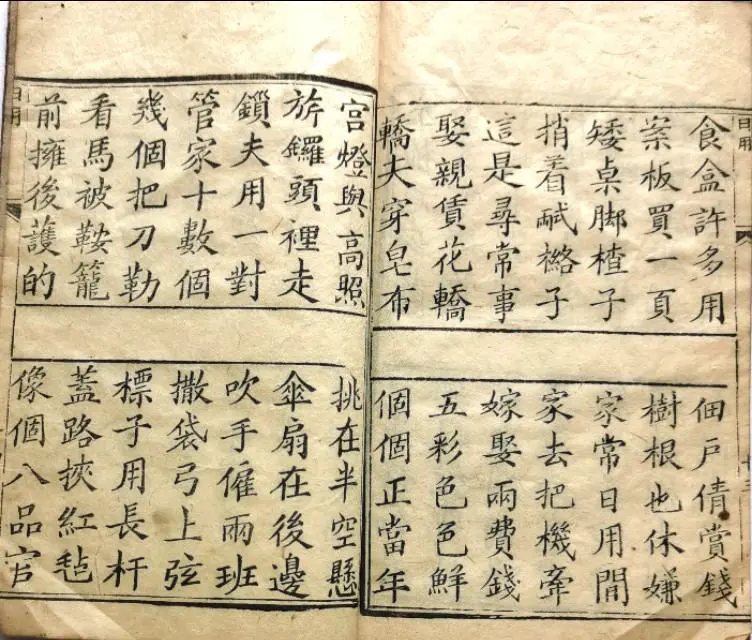 日用
食盒許多用
佃戶倩賞錢
案板買一頁
樹根也休嫌
矮桌脚楂子
家常日用閒
捎着子
家去把機牽
這是尋常事
嫁娶兩費錢
娶親賃花轎
五彩色色鮮
轎夫穿皂布
個個正當年
宮燈與高照
挑在半空懸
旂鑼頭裡走
傘扇在後邊
鎖夫用一對
吹手僱兩班
管家十數個
撒袋弓上弦
幾個把刀勒
標子用長杆
看馬被鞍籠
蓋路挾紅毡
前擁後護的
像個八品官
日用